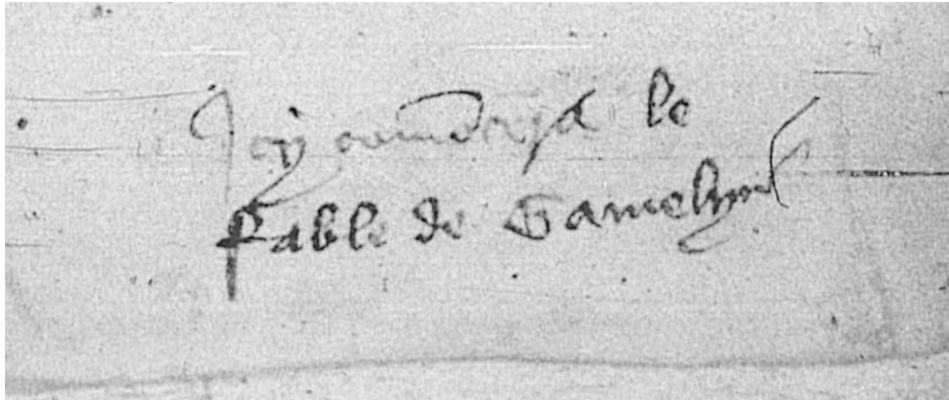 Icy comencera le
fable de Gamelyn